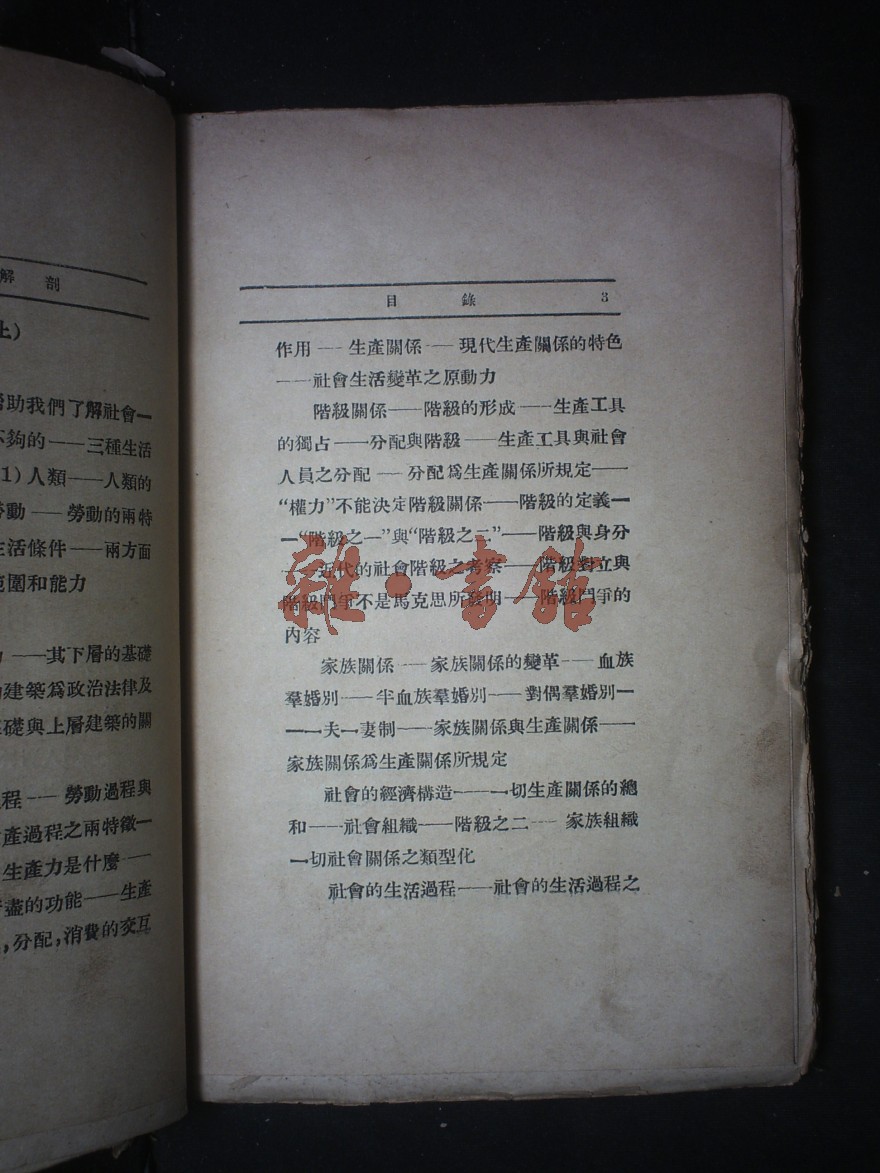 解 剖
上）
助我們了解社會—
不夠的——三種生活
1）人類——人類的
勞動——勞動的兩特
生活條件——兩方面
範圍和能力
——其下層的基礎
建築爲政治法律及
基礎與上層建築的關
程——勞動過程與
產過程之兩特徵—
生產力是什麼——
盡的功能——生產
，分配，消費的交互
目 錄 3
作用——生產關係——現代生產關係的特色
——社會生活變革之原動力
階級關係——階級的形成——生產工具
的獨占——分配與階級——生產工具與社會
人員之分配——分配爲生產關係所規定——
“權力”不能決定階級關係——階級的定義—
—“階級之一”與“階級之二”——階級與身分
——近代的社會階級之考察——階級對立與
階級鬥爭不是馬克思所發明——階級鬥爭的
內容
家族關係——家族關係的變革——血族
羣婚別——半血族羣婚別——對偶羣婚別—
—一夫一妻制——家族關係與生產關係——
家族關係爲生產關係所規定
社會的經濟構造——一切生產關係的總
和——社會組織——階級之二——家族組織
一切社會關係之類型化
社會的生活過程——社會的生活過程之
雜·書館